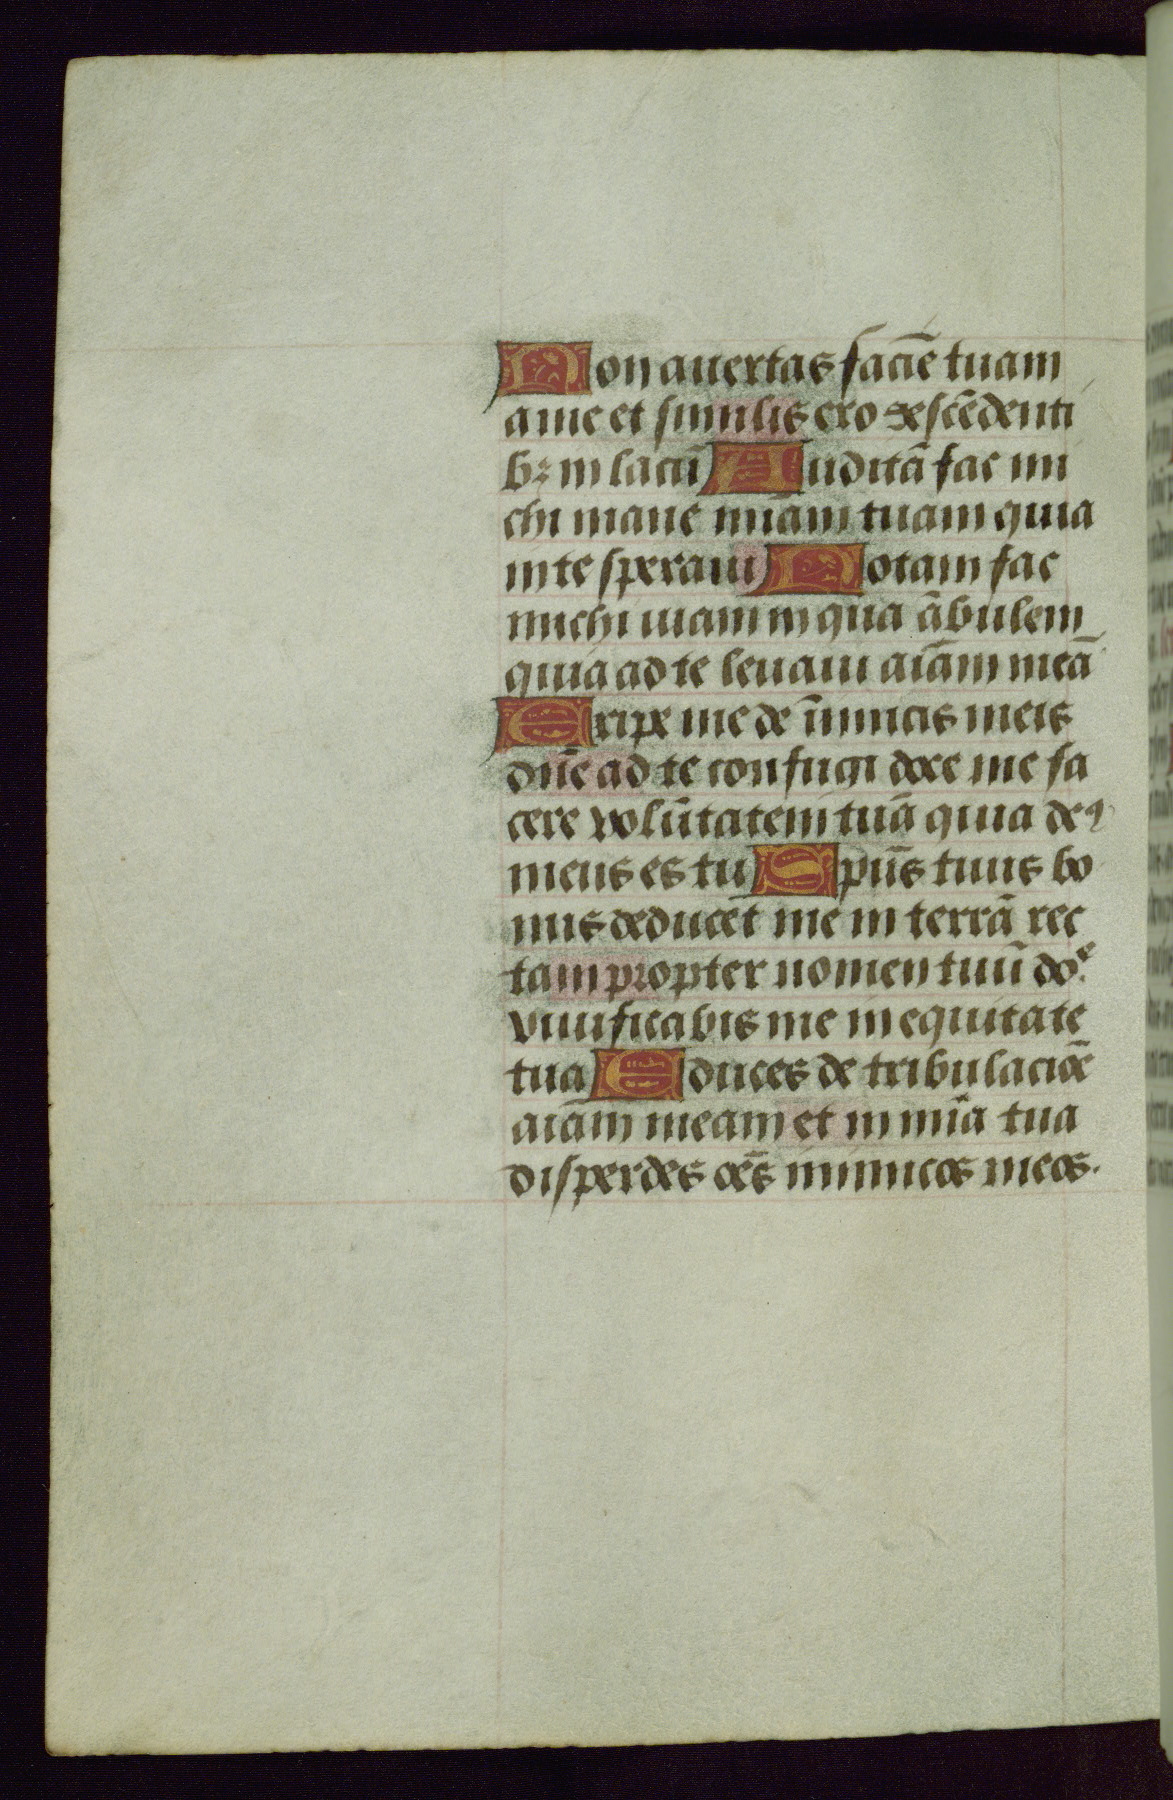 Non auertas faciē tuam
a me et similis ero descēdenti
bꝫ in lacū Auditā fac mi
chi mane mīam tuam quia
in te speraui Notam fac
michi uiam in qua ābulem
quia ad te leuaui aīam meā
Eripe me de īimicis meis
dn̄e ad te confugi doce me fa
cere volūtatem tuā quia deꝰ
meus es tu Spūs tuus bo
nus deducet me in terrā rec
tam propter nomen tuū doͤ
viuificabis me in equitate
tua Educes de tribulaciōe
aīam meam et in mīa tua
disperdes oēs inimicos meos.